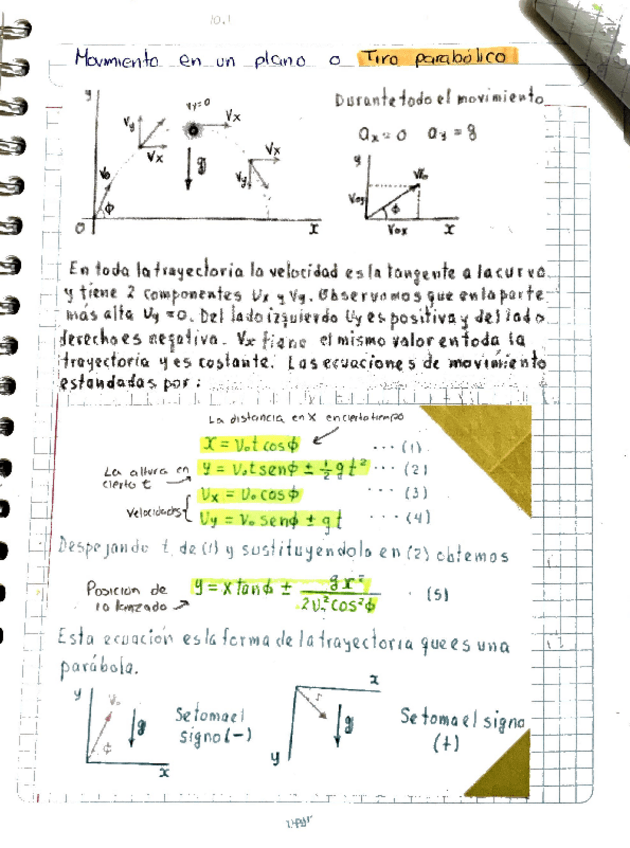 10.1
Movimiento en un plano o Tiro parabólico
Durante todo el movimiento
ax=0 ay=g
y
Vy=0
Vx
Vy
Vx
g
Vx
Vy
V0
ϕ
0
x
y
V0y
V0
ϕ
V0x
x
En toda la trayectoria la velocidad es la tangente a la curva
y tiene 2 componentes Vx y Vy. Observamos que en la parte
más alta Vy=0. Del lado izquierdo Vy es positiva y del lado
derecho es negativa. Vx tiene el mismo valor en toda la
trayectoria y es costante. Las ecuaciones de movimiento
estan dadas por:
La distancia en X en cierto tiempo
x = V₀t cosϕ ... (1)
La altura en cierto t
y = V₀t senϕ ± 1/2 gt² ... (2)
Velocidades
Vx = V₀ cosϕ ... (3)
Vy = V₀ senϕ ± gt ... (4)
Despejando t de (1) y sustituyendolo en (2) obtemos
Posición de lo lanzado
y = x tanϕ ± gx²/2V₀²cos²ϕ . (5)
Esta ecuación es la forma de la trayectoria que es una
parábola.
y
V₀
g
ϕ
x
Se toma el
signo (-)
x
g
y
Se toma el signo
(+)